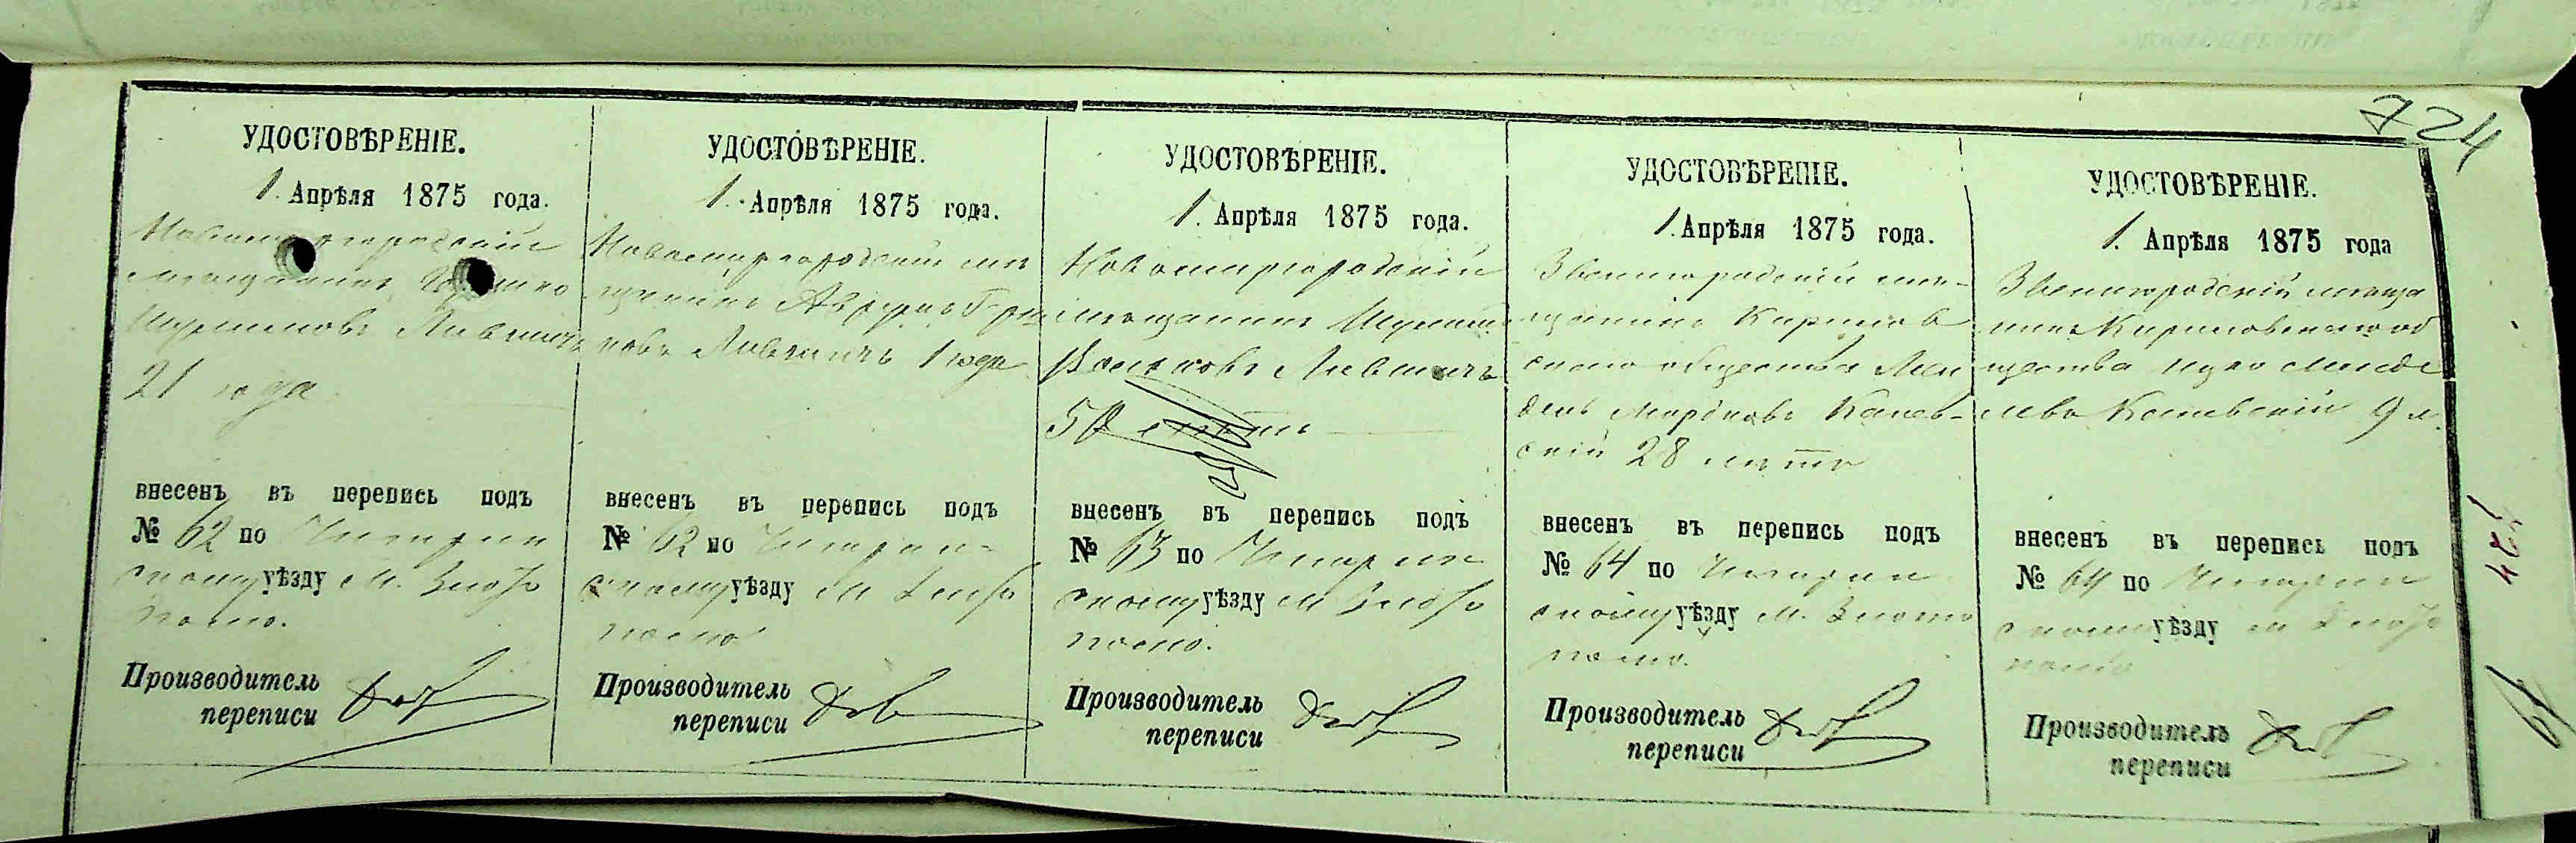 724
УДОСТОВѢРЕНІЕ.
1 Апрѣля 1875 года.
мѣщанинъ
Шулимовъ Лившицъ
21 года
внесенъ въ перепись подъ
№ 62 по Чигирин
скому уѣзду м. Злато
полю.
Производитель
переписи
УДОСТОВѢРЕНІЕ.
1 Апрѣля 1875 года.
Новомиргородскій мѣ
щанинъ
новъ Лившицъ 1 года
внесенъ въ перепись подъ
№ 62 по Чигирин-
скому уѣзду м Злато
полю
Производитель
переписи
УДОСТОВѢРЕНІЕ.
1 Апрѣля 1875 года.
Новомиргородскій
мѣщанинъ Шулимъ
Лившицъ
50 лѣтъ
внесенъ въ перепись подъ
№ 63 по Чигирин
скому уѣзду м Злато
полю.
Производитель
переписи
УДОСТОВѢРЕНІЕ.
1 Апрѣля 1875 года.
Звенигородскій мѣ-
щанинъ Кирилов
скаго общества Мен
дель Мордковъ Канев-
скій 28 лѣтъ
внесенъ въ перепись подъ
№ 64 по Чигирин
скому уѣзду м. Злато
полю.
Производитель
переписи
УДОСТОВѢРЕНІЕ.
1 Апрѣля 1875 года
Звенигородскій мѣща
нинъ Кириловскаго об
щества Ицко Менде
левъ Каневскій 9 л.
внесенъ въ перепись подъ
№ 64 по Чигирин
скому уѣзду м Злато
полю
Производитель
переписи